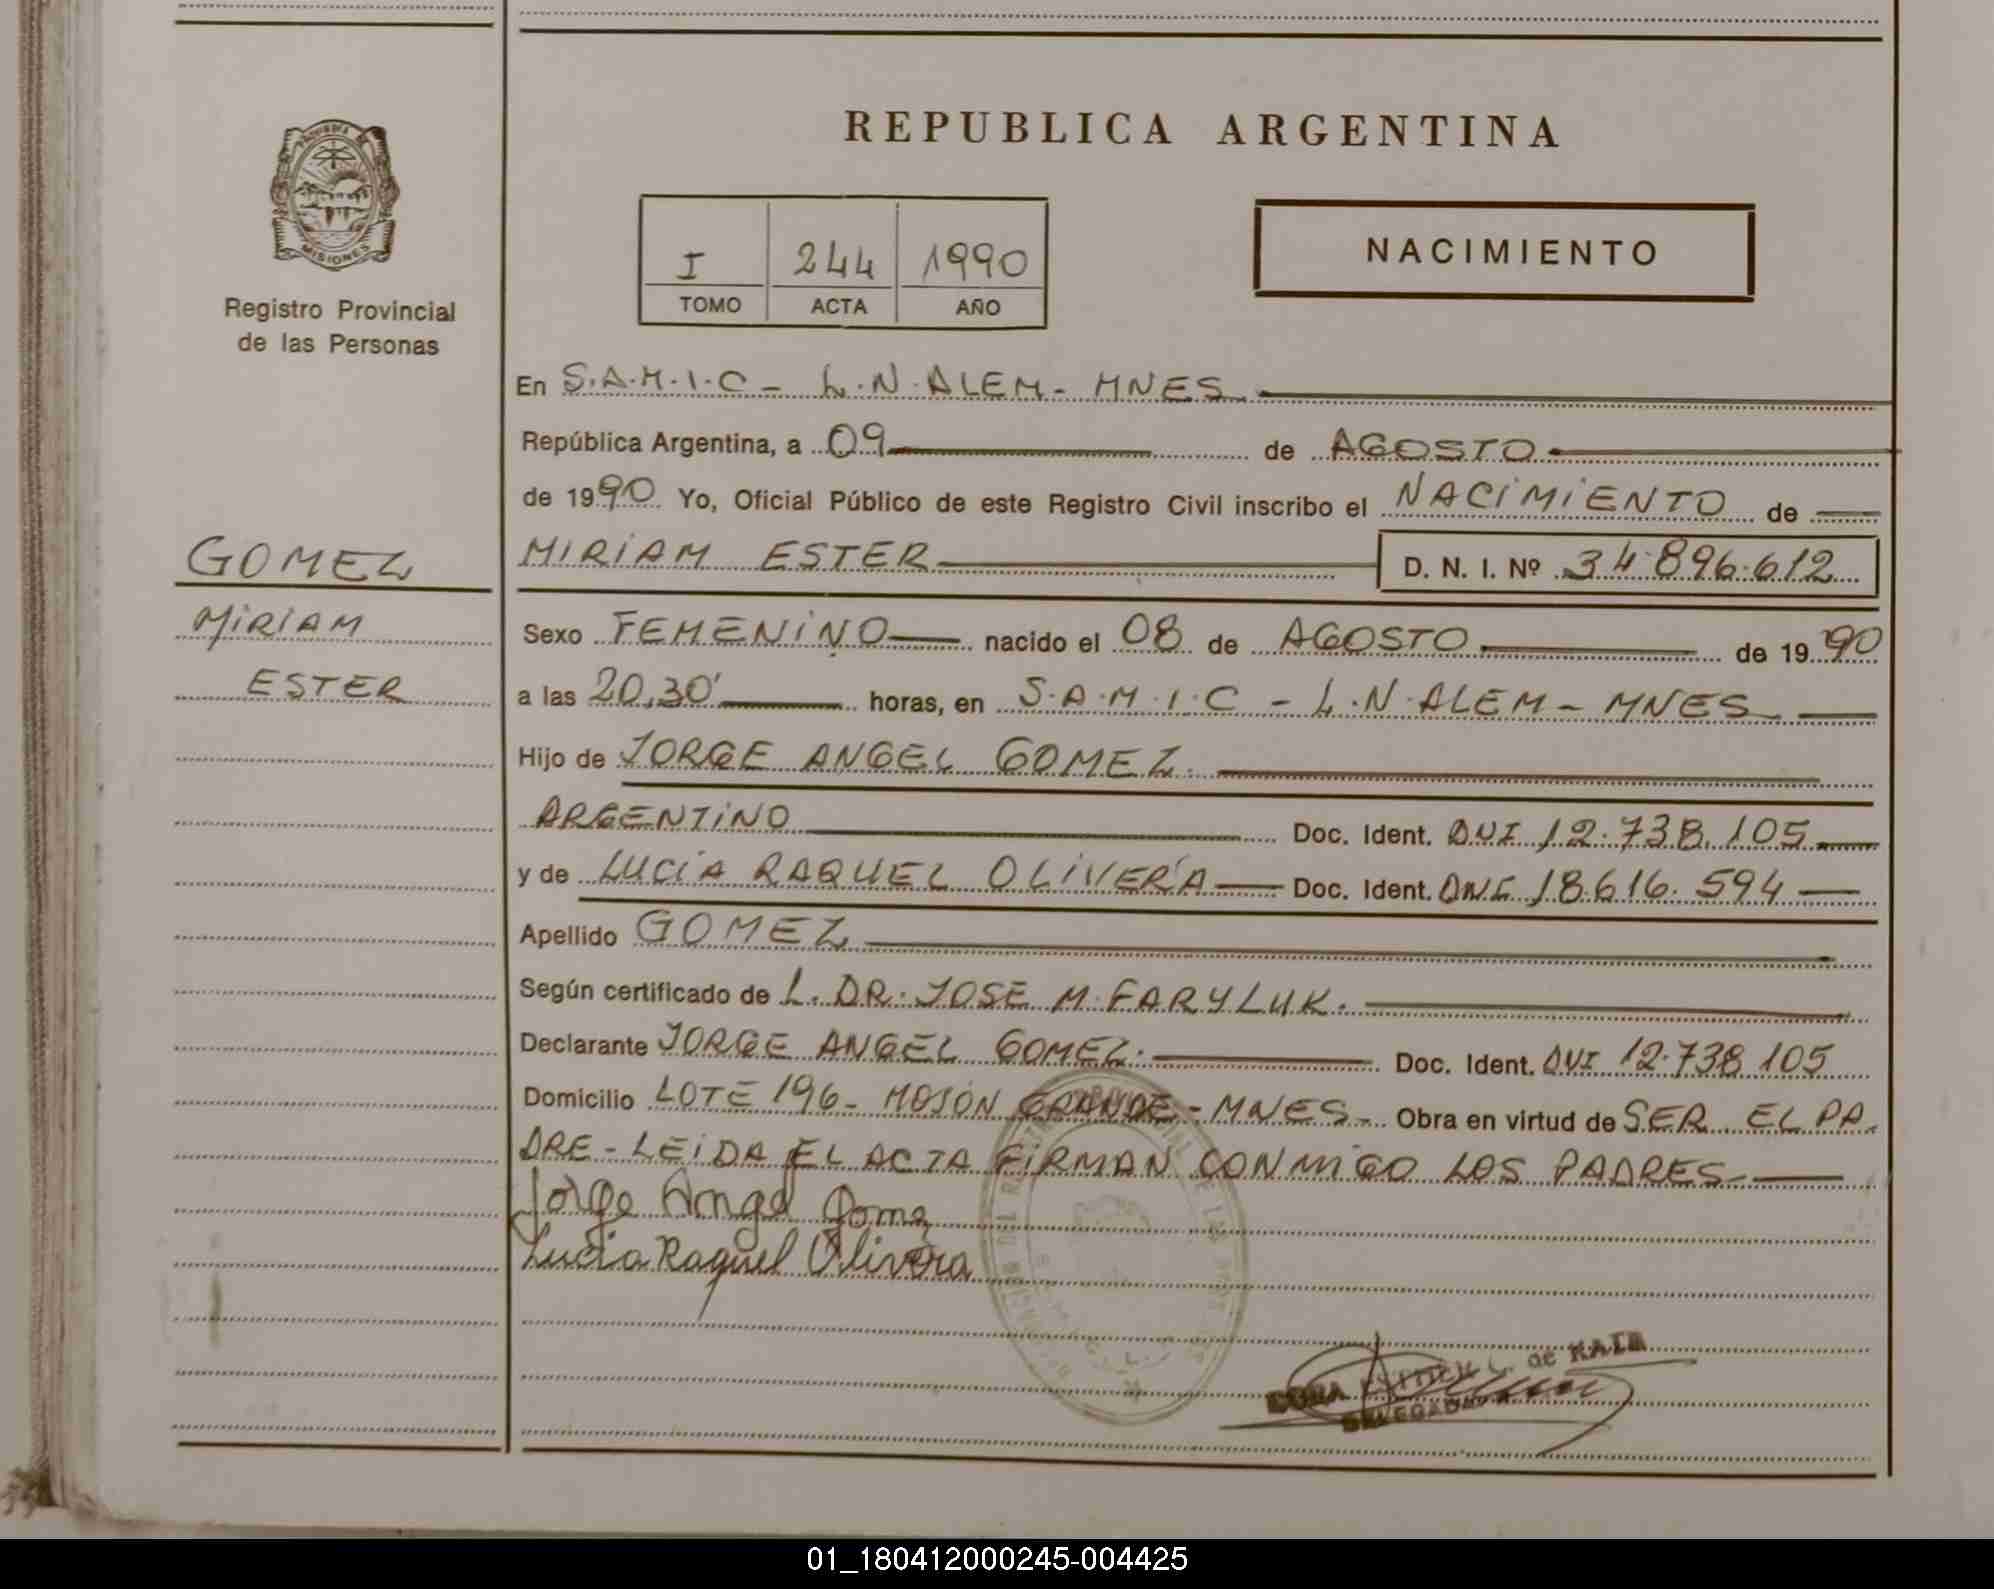 REPUBLICA ARGENTINA
PROVINCIA DE
MISIONES
Registro Provincial
de las Personas
I 244 1990
TOMO ACTA AÑO
NACIMIENTO
En S.A.M.I.C - L.N.ALEM - MNES
República Argentina, a 09 de AGOSTO
de 1990 Yo, Oficial Público de este Registro Civil inscribo el NACIMIENTO de
GOMEZ
MIRIAM ESTER D. N. I. Nº 34.896.612
MIRIAM
ESTER
Sexo FEMENINO nacido el 08 de AGOSTO de 1990
a las 20,30' horas, en S.A.M.I.C - L.N.ALEM - MNES
Hijo de JORGE ANGEL GOMEZ.
ARGENTINO Doc. Ident. DNI 12.738.105
y de LUCIA RAQUEL OLIVERA Doc. Ident. DNI 18.616.594
Apellido GOMEZ
Según certificado de L. DR. JOSE M. FARYLUK.
Declarante JORGE ANGEL GOMEZ. Doc. Ident. DNI 12.738.105
Domicilio LOTE 196 - MOJON GRANDE - MNES - Obra en virtud de SER EL PA-
DRE - LEIDA EL ACTA FIRMAN CONMIGO LOS PADRES
Jorge Angel Gomez
Lucia Raquel Olivera
de KATZ
DELEGADA
01_180412000245-004425